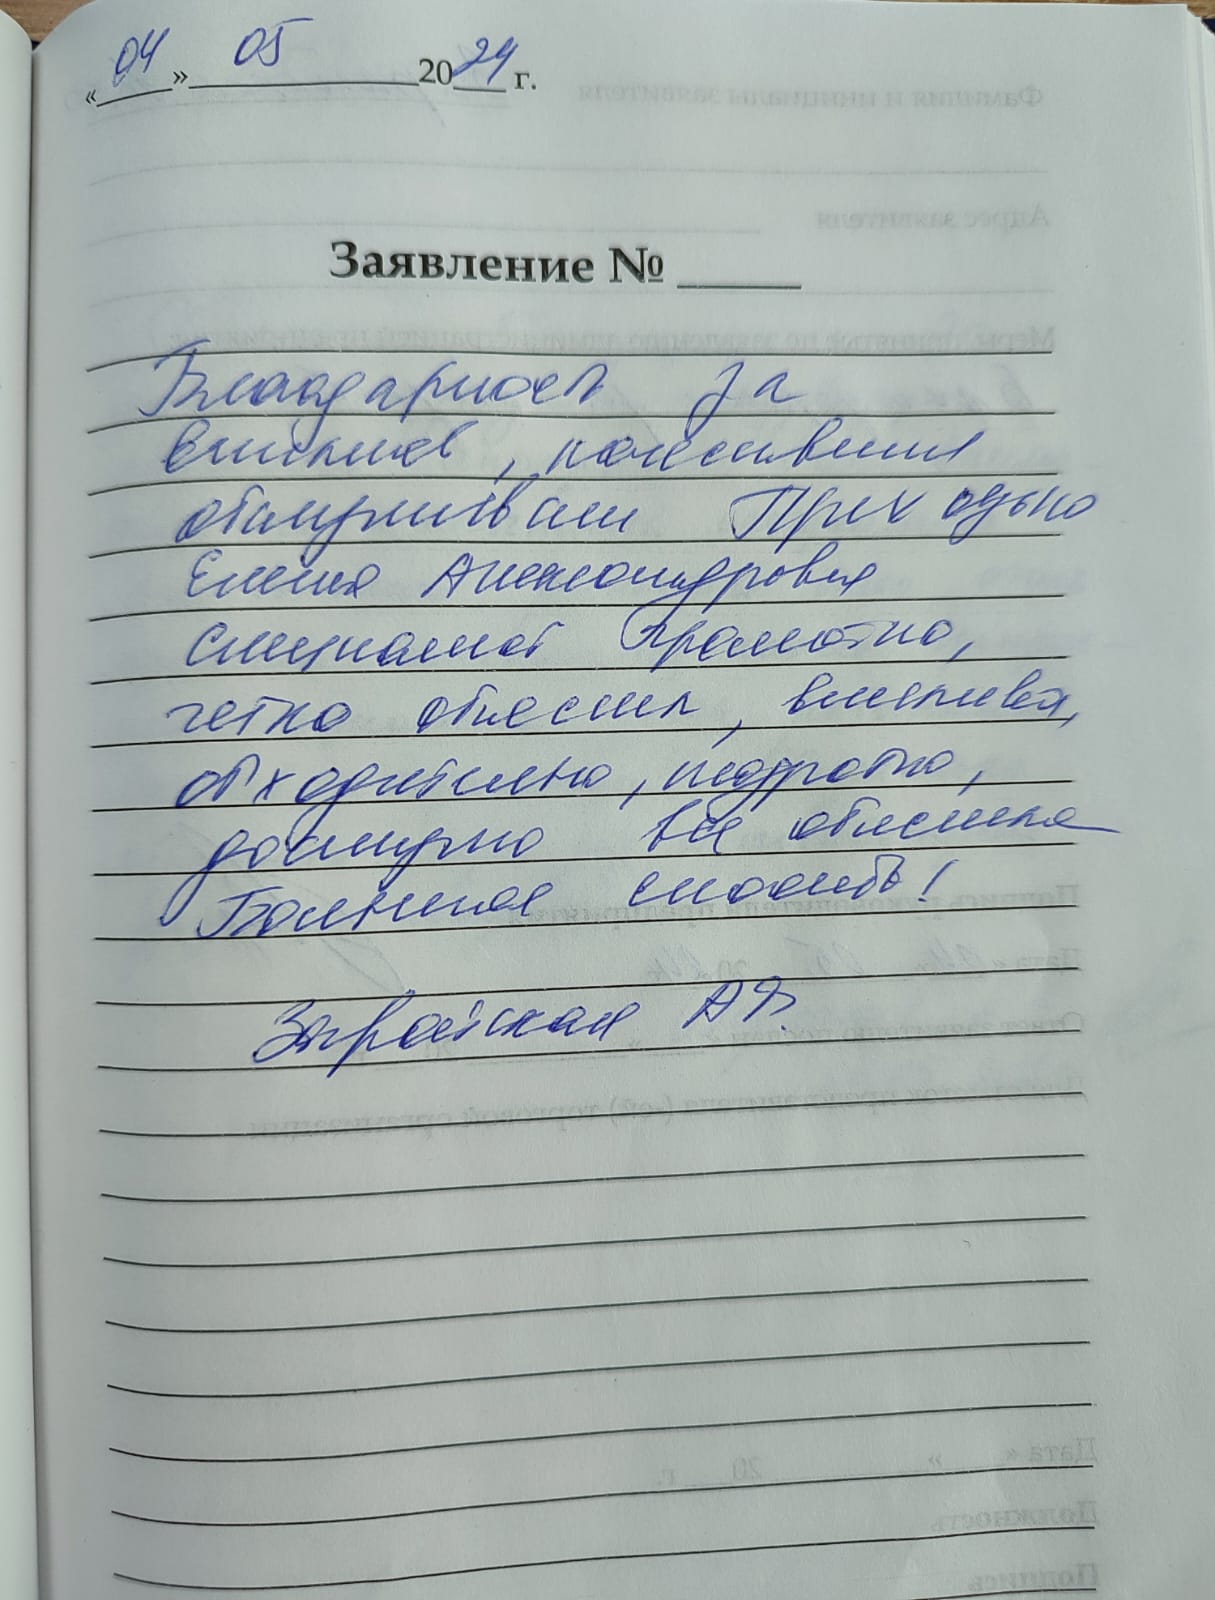 «04» 05 2024 г.
Заявление № ____
Благодарность за
внимание, качественное
обслуживание Приходько
Елена Александровна
специалист грамотно,
четко объяснил, внимательна,
обходительна, подробно,
доступно все объяснила
Большое спасибо!
Зарайская А